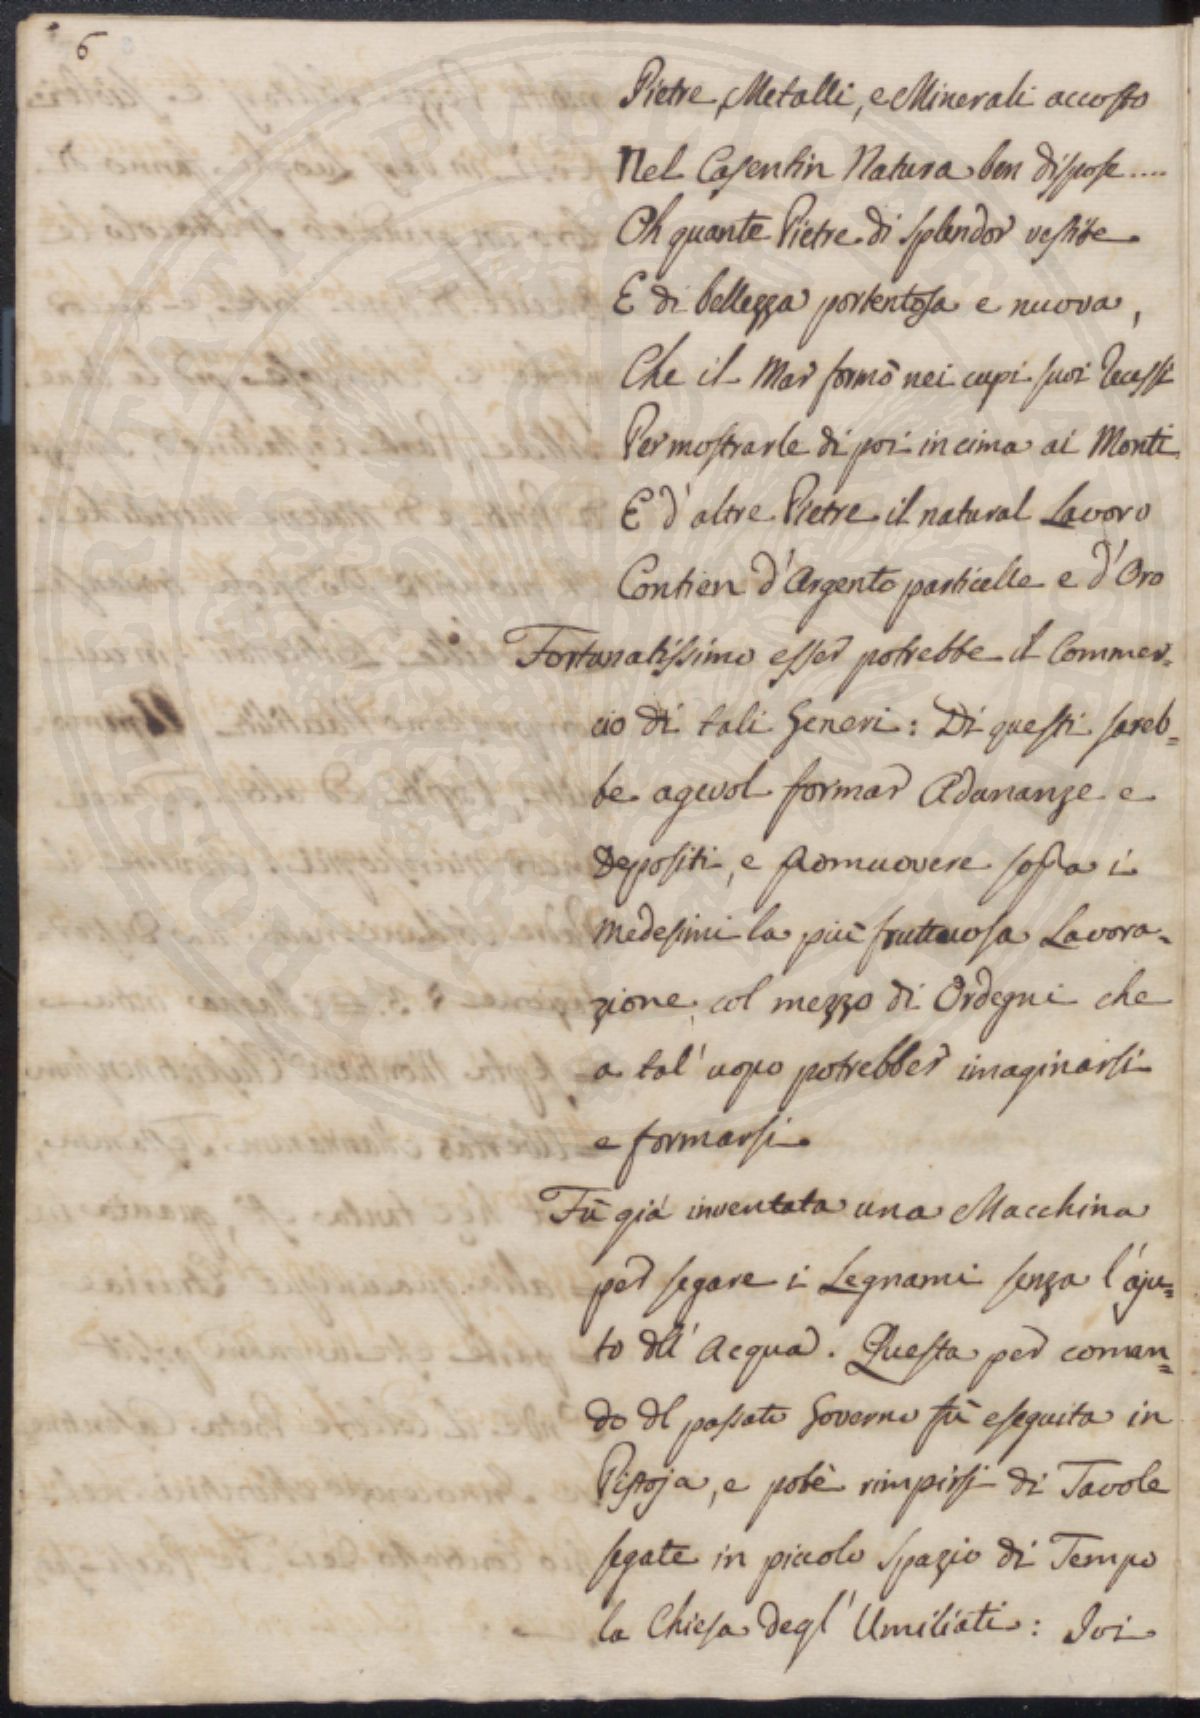 6
Pietre, Metalli, e Minerali accosto
Nel Casentin Natura ben dispose....
Oh quante Pietre di splendor vestite
E di bellezza portentosa e nuova,
Che il Mar formò nei cupi suoi recessi
Per mostrarle di poi in cima ai Monti
E d'altre Pietre il natural Lavoro
Contien d'Argento particelle e d'Oro
Fortunatissimo esser potrebbe il Commer=
cio di tali Generi: Di questi sareb=
be agevol formar Adunanze e
Depositi, e promuovere sopra i
medesimi la più fruttuosa Lavora=
zione col mezzo di Ordegni che
a tal'uopo potrebber imaginarsi
e formarsi
Fù già inventata una Macchina
per segare i Legnami senza l'aju=
to dll'Acqua. Questa per coman=
do dl passato Governo fù eseguita in
Pistoja, e potè rimpirsi di Tavole
segate in piccolo spazio di Tempo
la Chiesa degl'Umiliati: Ivi